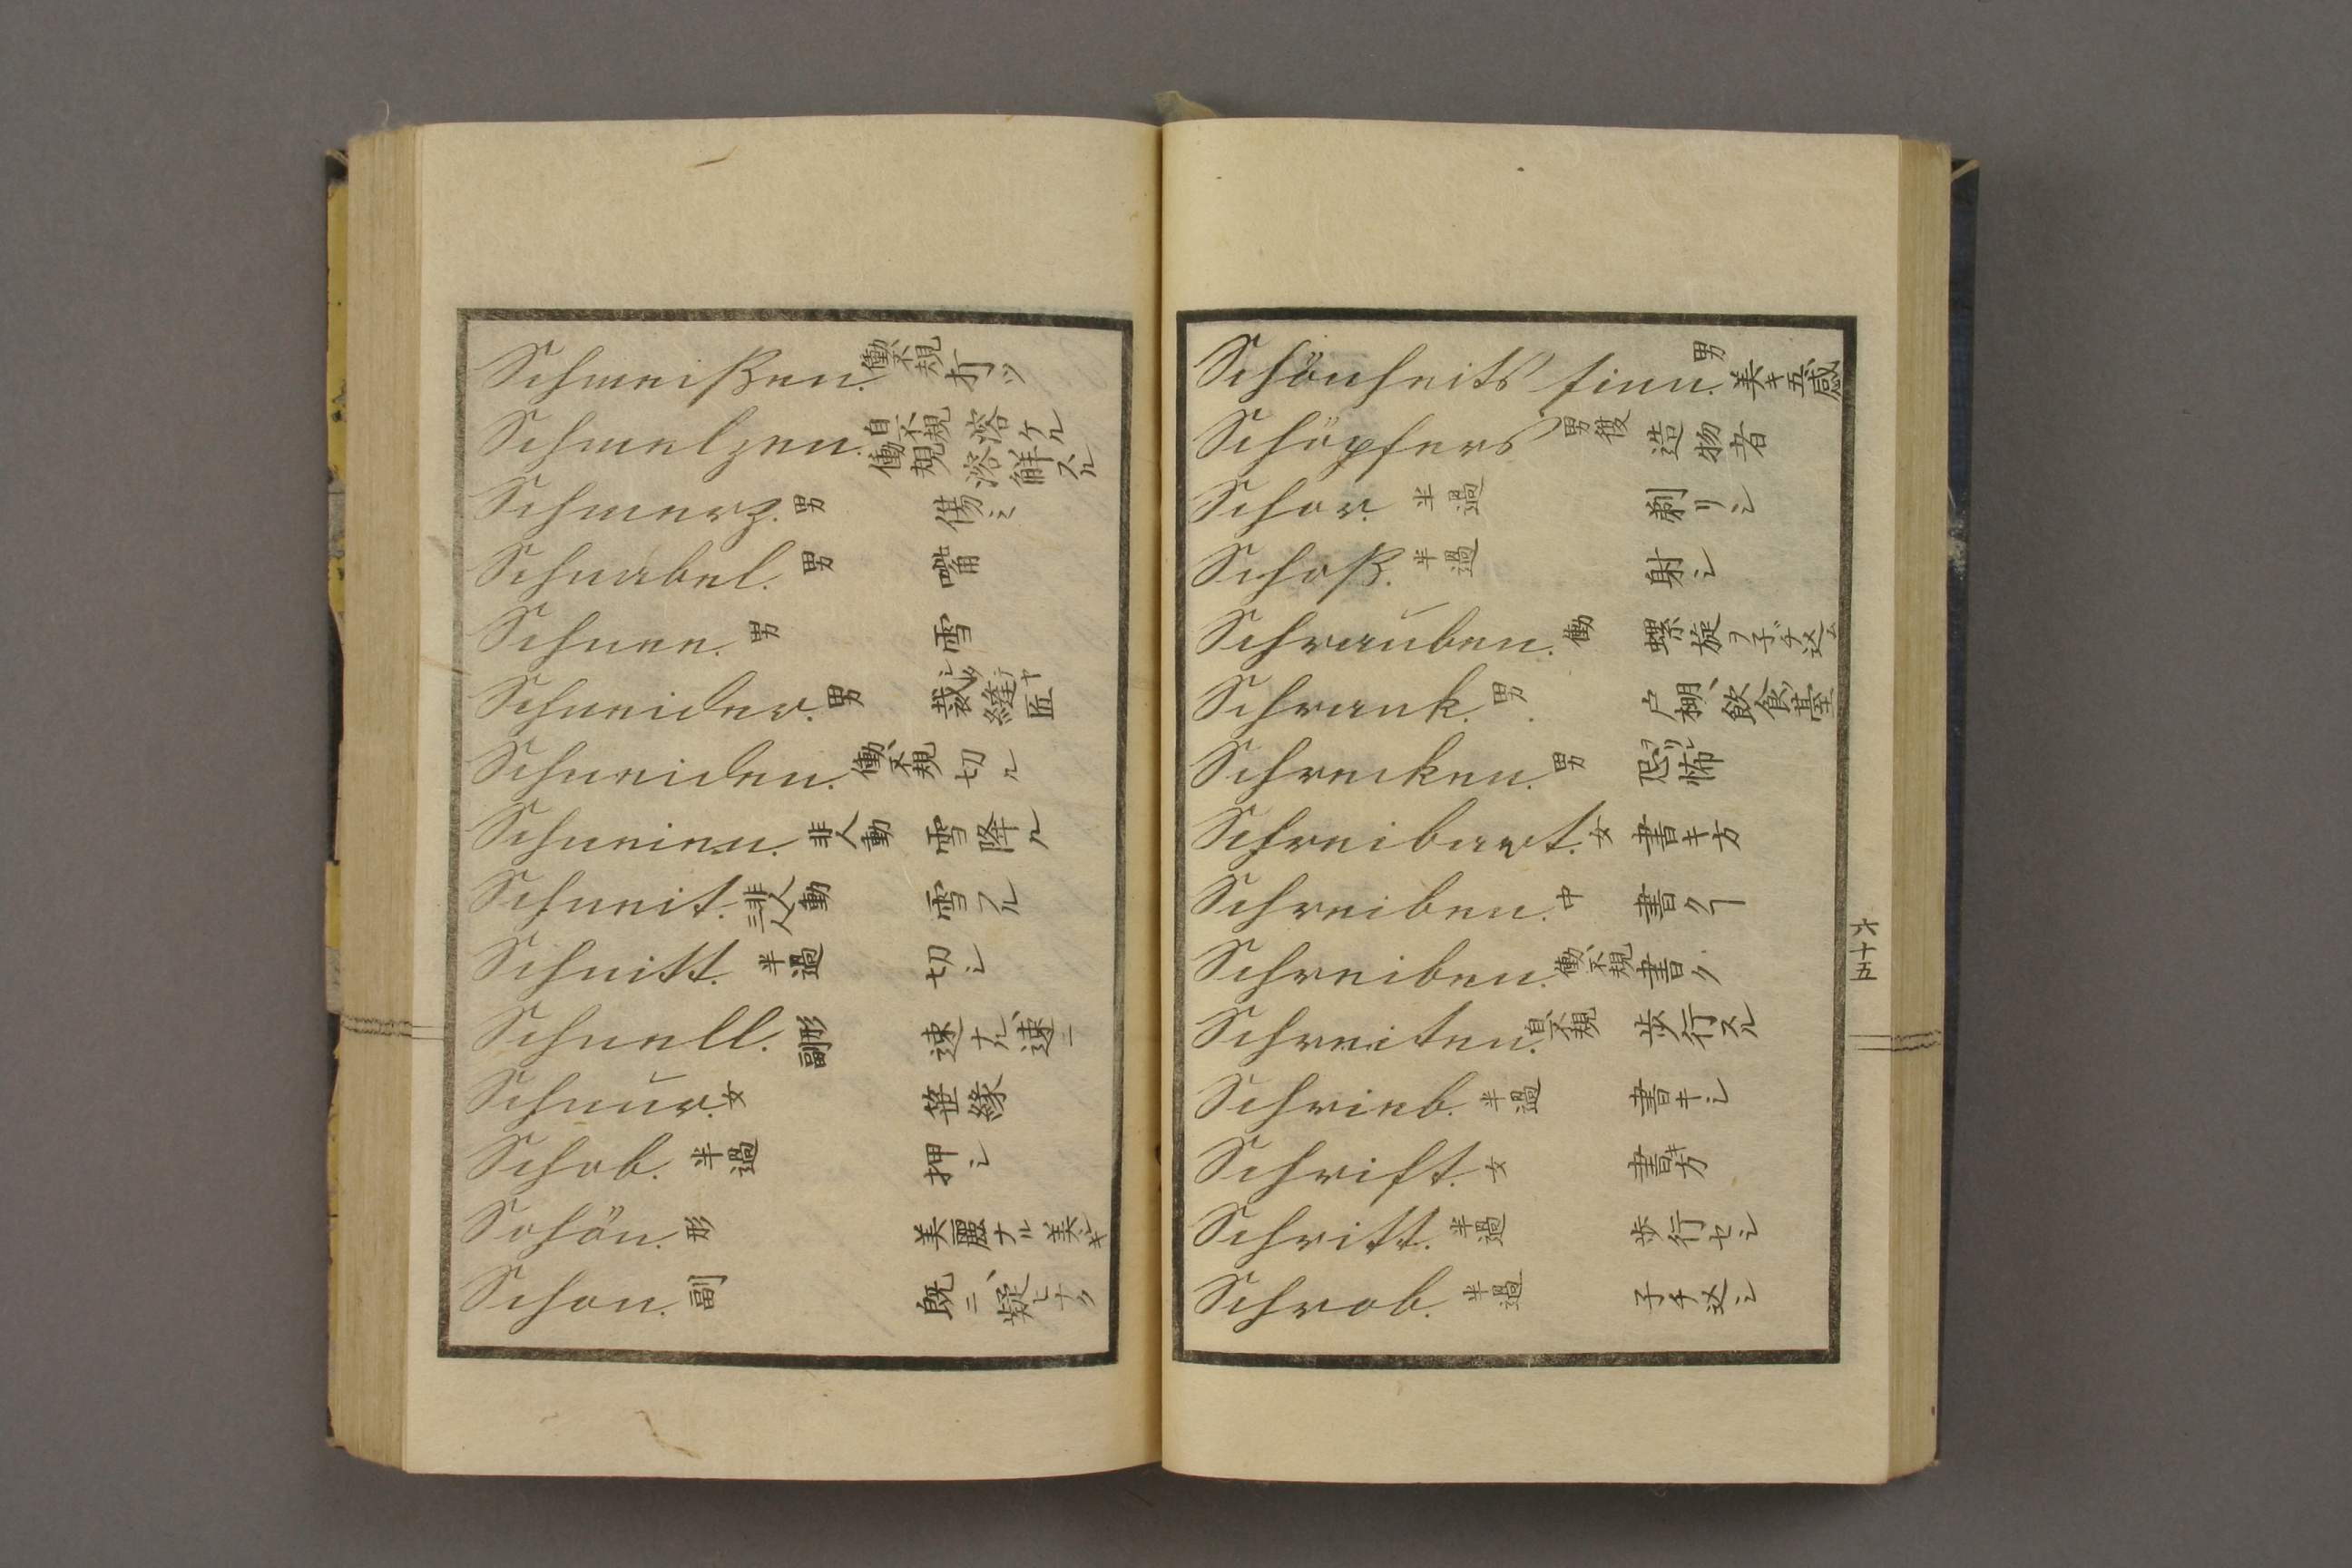 Schmeißen. 働、不規 打ツ
Schmelzen. 自、不規 溶ケル 働、規 溶解スル
Schmerz. 男 傷ミ
Schnabel. 男 嘴
Schnee. 男 雪
Schneider. 男 裁縫匠
Schneiden. 働、不規 切ル
Schneien. 非人動 雪降ル
Schneit. 非人動 三人 雪フル
Schnitt. 半過 切シ
Schnell. 形 副 速ナル、速ニ
Schnur. 女 笹縁
Schob. 半過 押シ
Schön. 形 美麗ナル 美シキ
Schon. 副 既ニ、疑ヒナク
Schönheits sinn. 男 美キ五感
Schöpfers 男後 造物者
Schor. 半過 剃リシ
Schoß. 半過 射シ
Schrauben. 働 螺旋ヲ子ヂ込ム
Schrank. 男 戸棚、飲食臺
Schrecken. 男 恐怖
Schreibart. 女 書キ方
Schreiben. 中 書クヿ
Schreiben. 働、不規 書ク
Schreiten. 自、不規 歩行スル
Schrieb. 半過 書キシ
Schrift. 女 書キ方
Schritt. 半過 歩行セシ
Schrob. 半過 子ヂ込シ
六十五